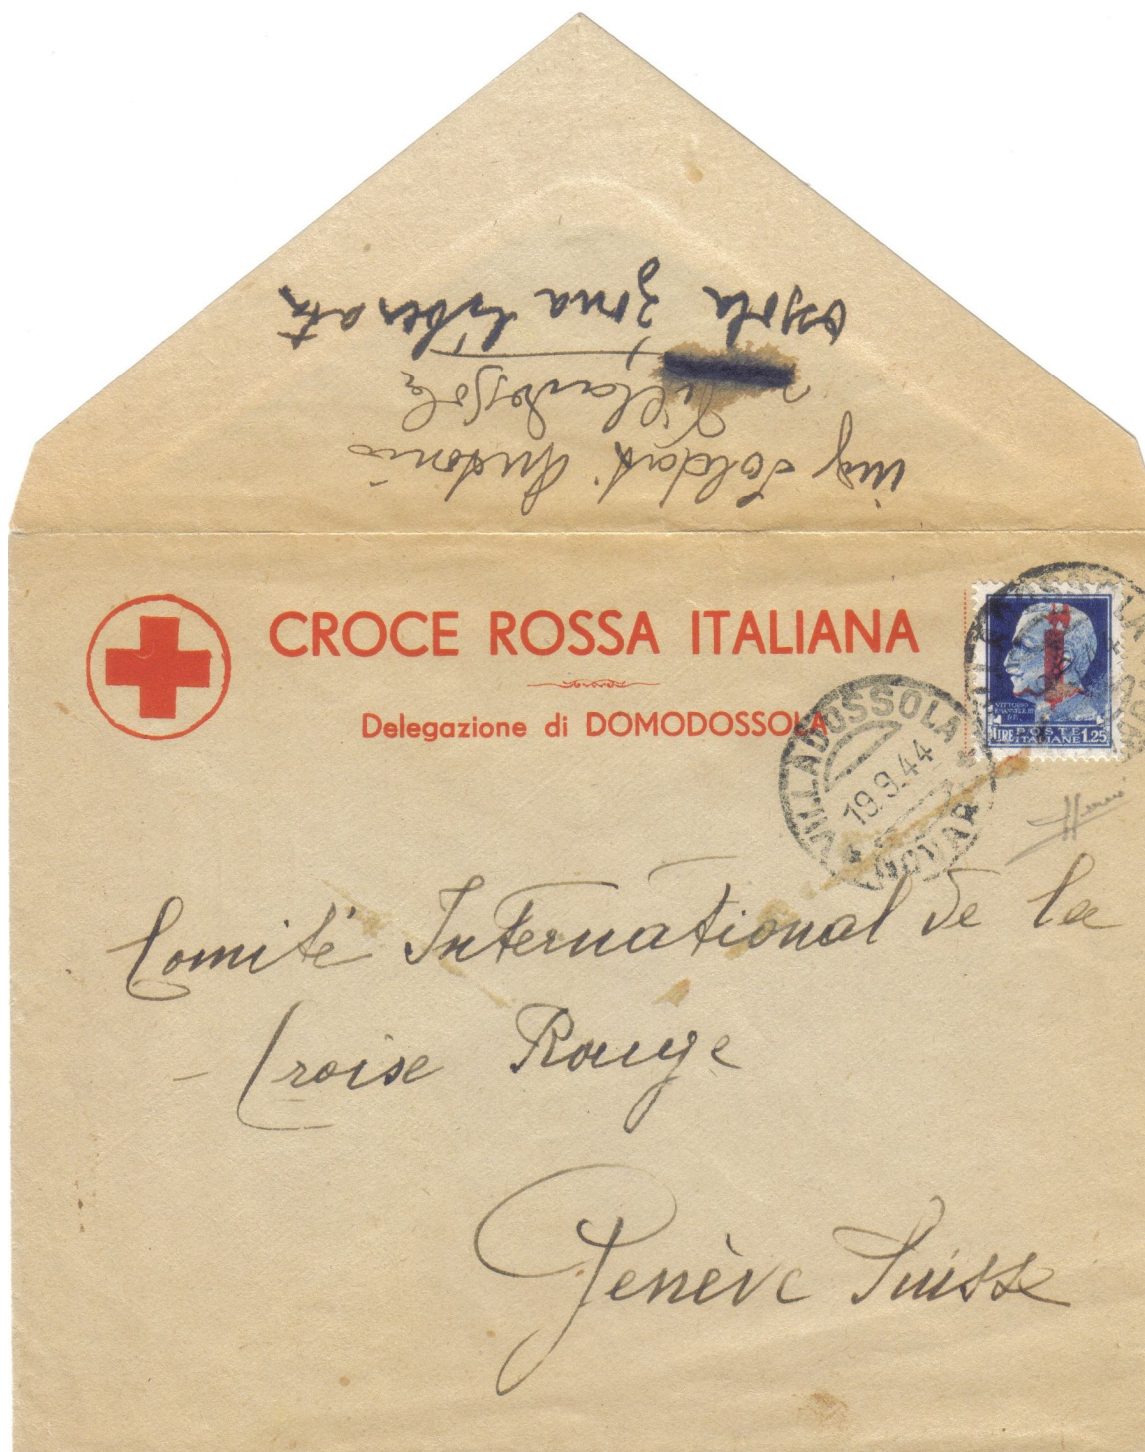 ing Soldati Antonio
Villadossola
Ossola zona liberata
CROCE ROSSA ITALIANA
Delegazione di DOMODOSSOLA
VILLADOSSOLA
19.9.44
NOVARA
VITTORIO
EMANUELE III
LIRE POSTE ITALIANE 1,25
Comité International de la
- Croise Rouge
Genève Suisse